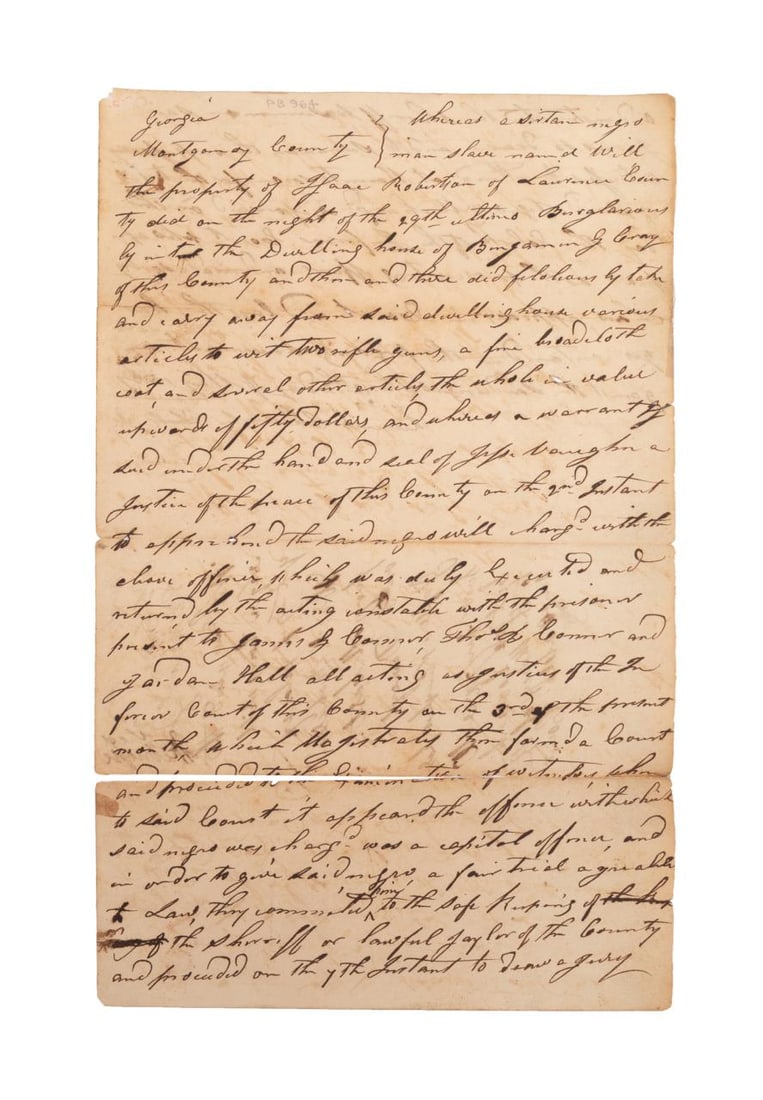 PB 96A
Georgia } Whereas a sirtan negro
Montgomery County } man slave named Will
the property of Isaac Robertson of Laurence Coun
ty did on the night of the 29th ultimo Burglarious
by inter the Dwelling house of Bingamin G Cray
of this County and then and there did filonious by take
and carry away from said dwelling house various
articles to wit two rifle guns, a fine broadcloth
coat, and several other articles, the whole in value
upwards of fifty dollars, and whereas a warrant
said under the hand and seal of Jesse Vaughn a
Justice of the peace of this County on the 2nd Instant
to apprehend the said negro will chargd with the
above offence, which was duly Executed and
returnd by the acting constable with the prisoner
present to James G Connor, Thos. A Connor and
Hall all acting as Justices of the In
ferior Court of this County on the 3rd of the present
month, which Magistrates then formd a Court
and proceeded to the Examination of witnesses when
to said Court it appeard the offence with which
said negro was chargd was a capital offence, and
in order to give said negro, a fair trial agreable
to Law, they committed him to the safe keeping of the keep
ing of the Sherriff or lawful Jaylor of the County
and proceeded on the 7th Instant to draw a Jury